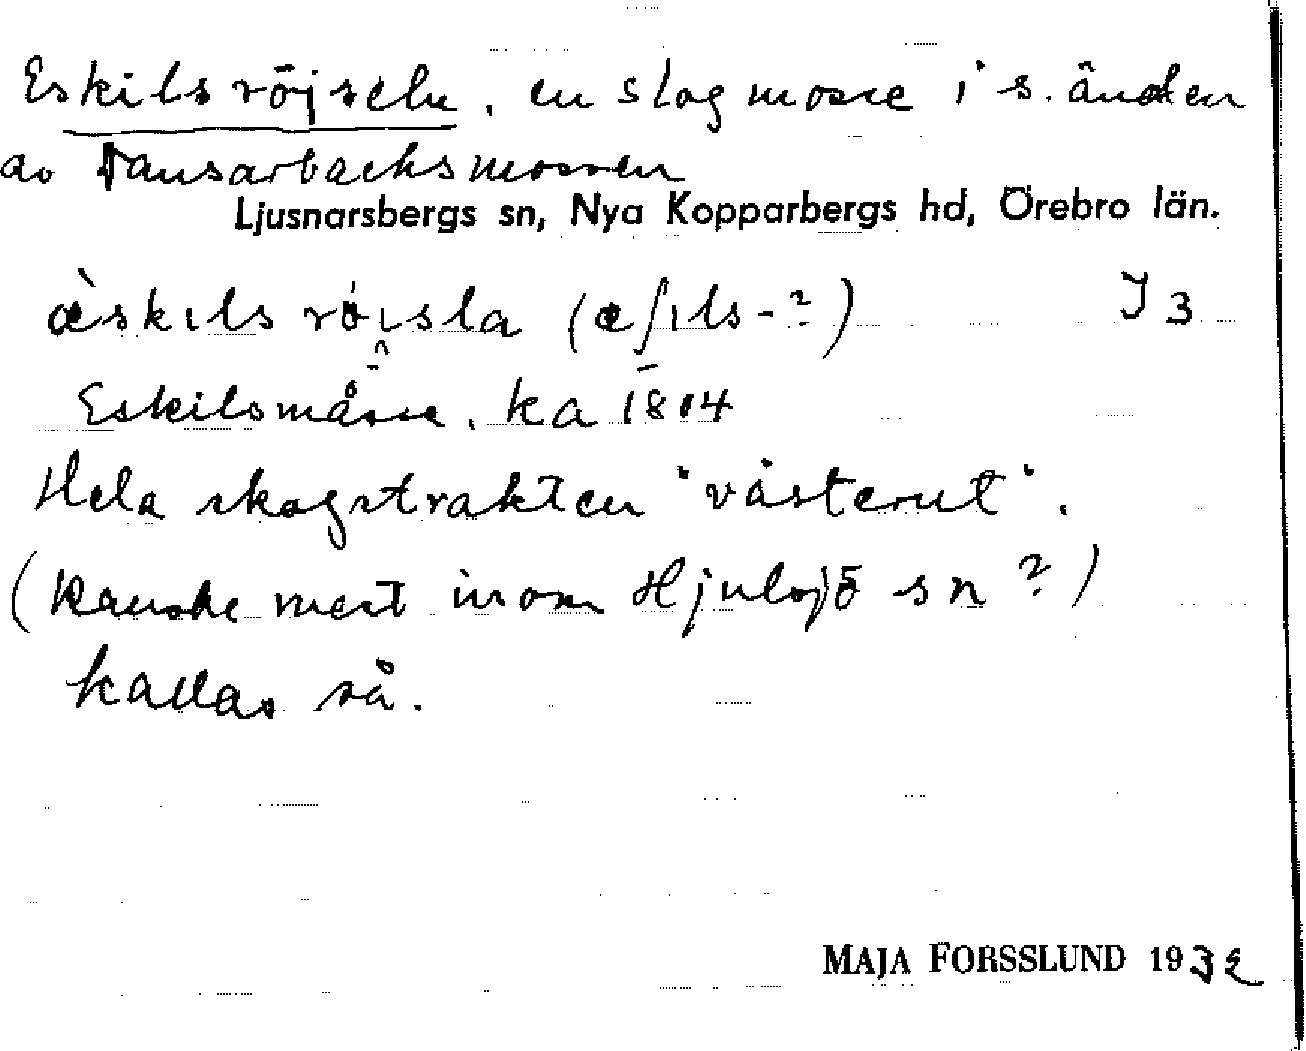 Eskilsröjseln, en slogmosse i s. änden
av Dansarbacksmossen
Ljusnarsbergs sn, Nya Kopparbergs hd, Örebro län.
æ̀skıls röısla (æʃıls-?) J 3
Eskilsmåsse, ka 1814
Hela skogstrakten "västerut".
(kanske mest inom Hjulsjö sn?)
kallas så.
MAJA FORSSLUND 1932